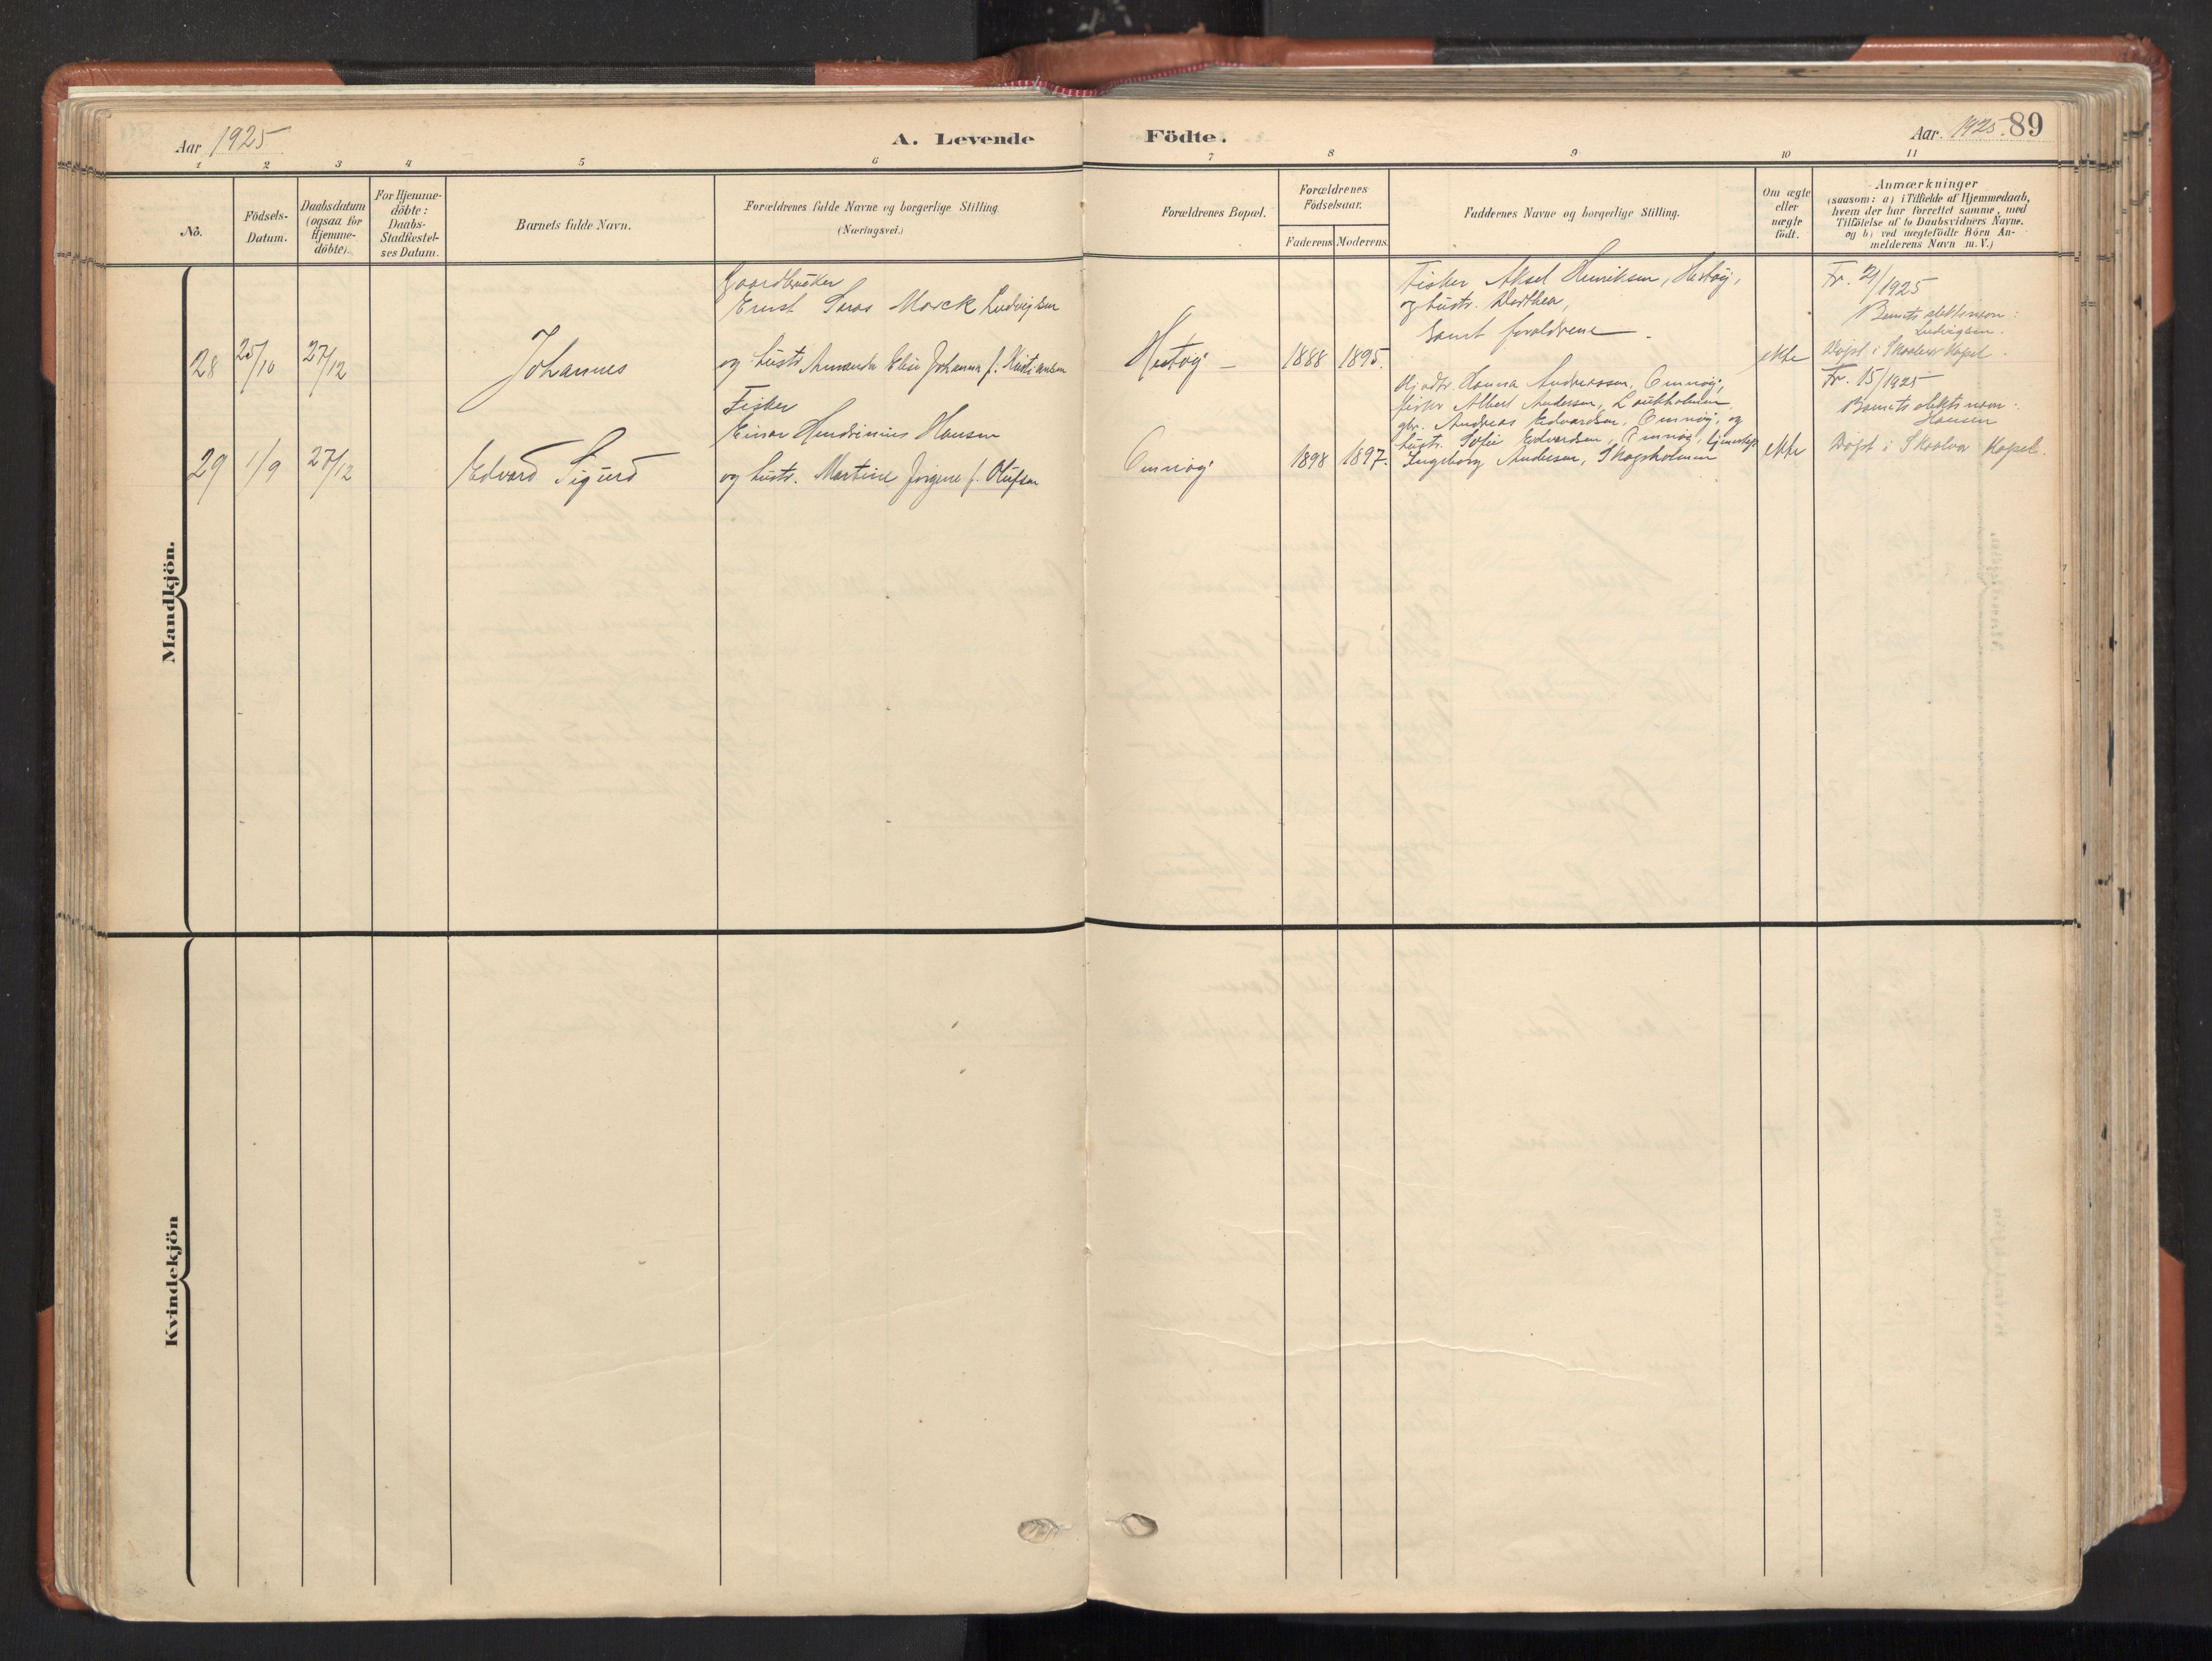 Aar 1925
A. Levende
Födte.
Aar. 1925.
89
1 2 3 4 5 6 7 8 9 10 11
No.
Födsels-
Datum.
Daabsdatum
(ogsaa for
Hjemme-
döbte).
For Hjemme-
döbte:
Daabs-
Stadfæstel-
ses Datum.
Barnets fulde Navn.
Forældrenes fulde Navne og borgerlige Stilling
(Næringsvei.)
Forældrenes Bopæl.
Forældrenes
Födselsaar.
Faderens
Moderens.
Faddernes Navne og borgerlige Stilling.
Om ægte
eller
uægte
födt.
Anmærkninger
(saasom: a) i Tilfælde af Hjemmedaab,
hvem der har forrettet samme, med
Tilföielse af to Daabsvidners Navne.
og b) ved uægtefödte Börn An-
melderens Navn m. V.)
Mandkjön.
28
25/10
27/12
Johannes
Gaardbruker
Ernst Marck Ludvigsen
og hustr. Amanda Elise Johanna f. Kristiansen
Hestøy
1888
1895.
Fisker Aksel Henriksen, Hestøy,
og hustr. Dorthea,
samt forældrene
ekte
Fr. 21/1925
Barnets slektsnavn:
Ludvigsen.
Døpt i Skaalvær Kapel.
29
1/9
27/12
Edvard Sigurd
Fisker
Einar Hendrinius Hansen
og hustr. Martine Jørgine f. Olufsen
Ømnøy
1898
1897.
Hanna Andreassen, Ømnøy,
fisker Albert Andersen,
gbr. Andreas Edvardsen, Ømnøy, og
hustr. Sofie Edvardsen, Ømnøy,
Ingeborg Andersen, Skogsholmen
ekte
Fr. 15/1925
Barnets slektsnavn:
Hansen
Døpt i Skaalvær Kapel.
Kvindekjön